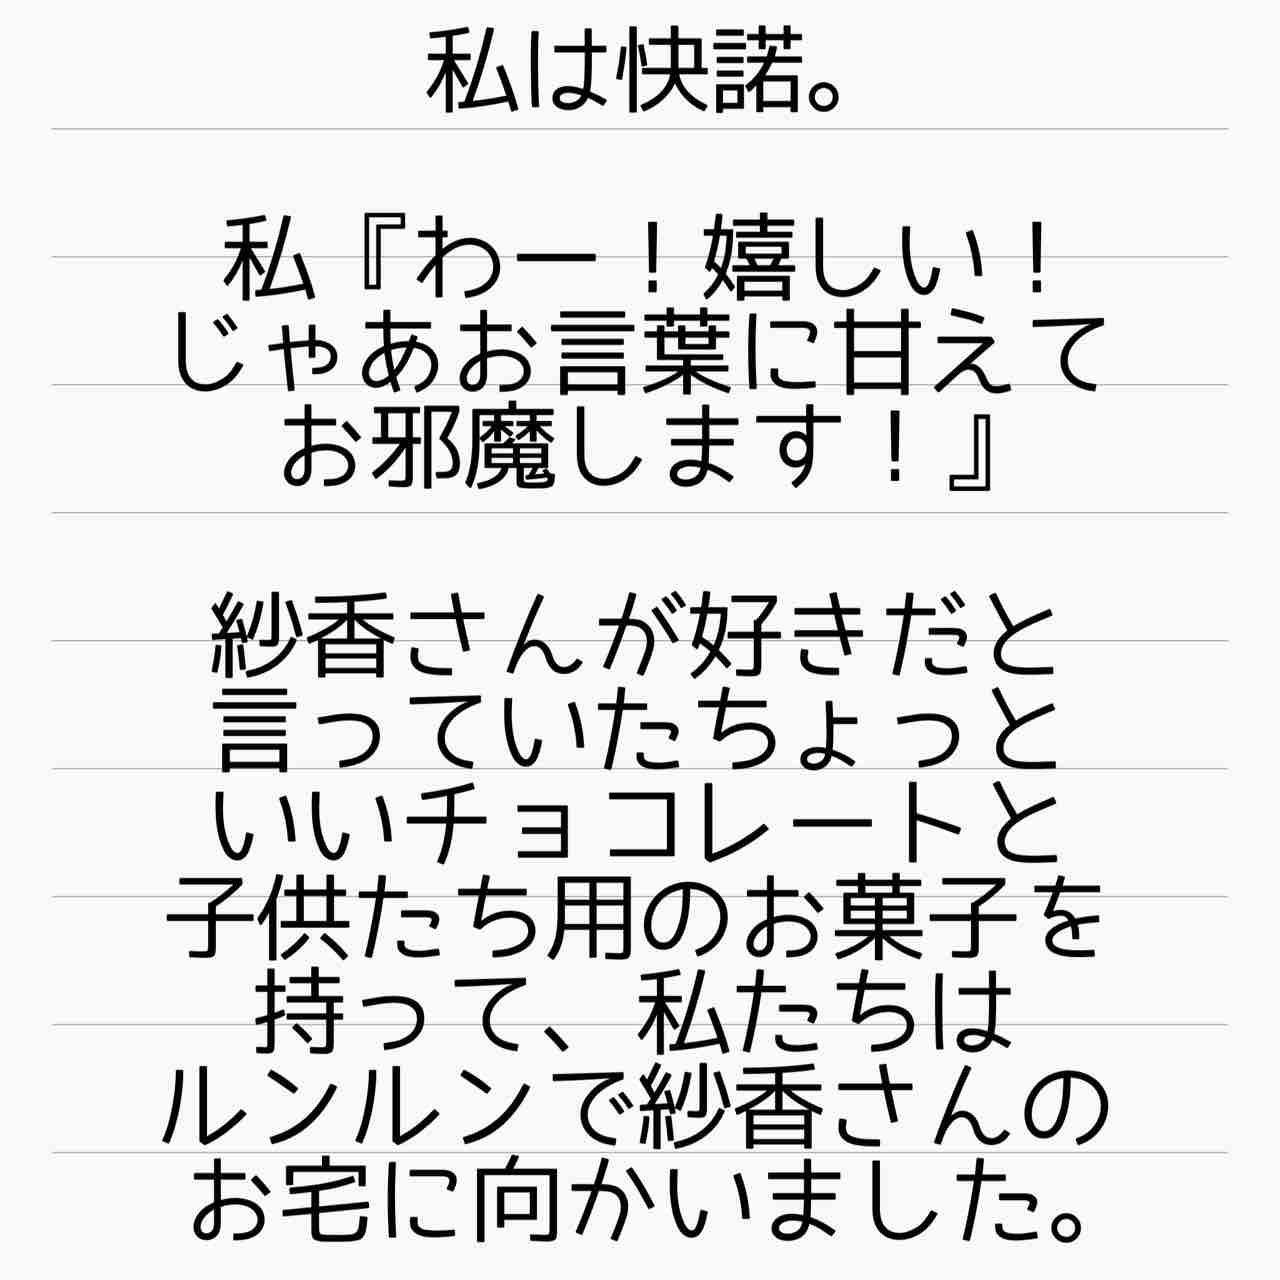 私は快諾。
私『わー！嬉しい！
じゃあお言葉に甘えて
お邪魔します！』
紗香さんが好きだと
言っていたちょっと
いいチョコレートと
子供たち用のお菓子を
持って、私たちは
ルンルンで紗香さんの
お宅に向かいました。